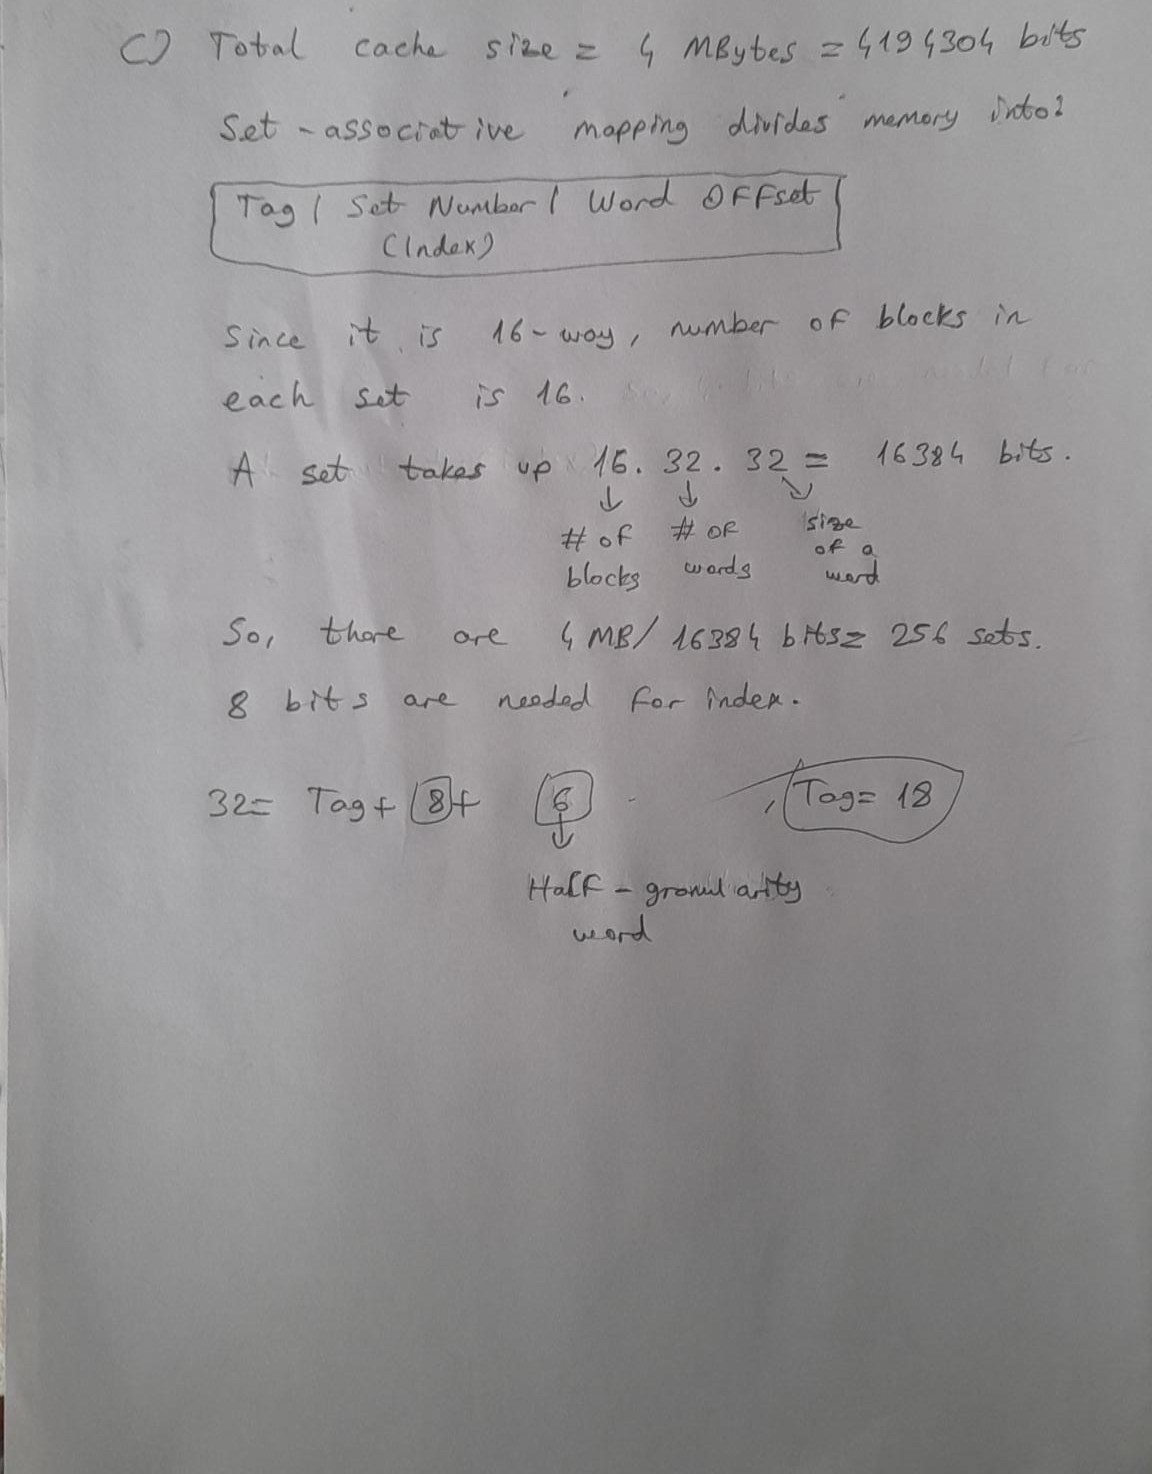 C) Total cache size = 4 MBytes = 4194304 bits
Set-associative mapping divides memory into:
Tag | Set Number | Word Offset
(Index)
Since it is 16-way, number of blocks in
each set is 16.
A set takes up 16. 32. 32 = 16384 bits.
# of # of size
blocks words of a
word
So, there are 4 MB/ 16384 bits = 256 sets.
8 bits are needed for index.
32 = Tag + 8 + 6 , Tag = 18
Half-granularity
word